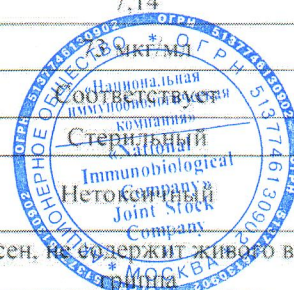 7,14
мкг/мл
Соответствует
Стерильный
Нетоксичный
сен, не содержит живого в
гриппа
ОГРН 5137746130902
АКЦИОНЕРНОЕ ОБЩЕСТВО * ОГРН 5137746130902 * МОСКВА *
«Национальная
иммунобиологическая
компания»
«National
Immunobiological
Company»
Joint Stock
Company